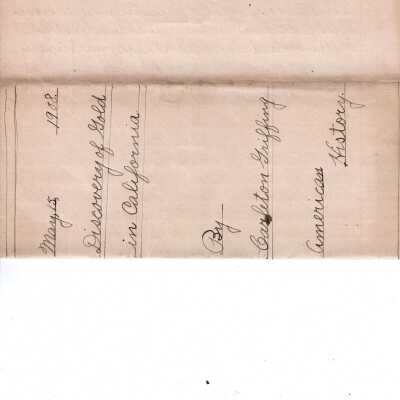 May 15 1908
Discovery of Gold
in California
By
Carleton Griffing
American
History.